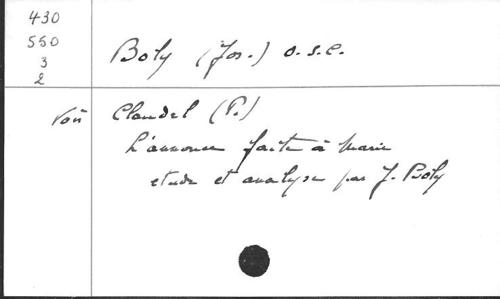 430
550
3
2
Boly (Jos.) o.s.c.
Voir Claudel (P.)
L'annonce faite à Marie
etude et analyse par J. Boly